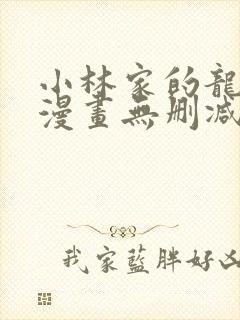 小林家的龍
漫畫無刪減
我家藍胖好凶